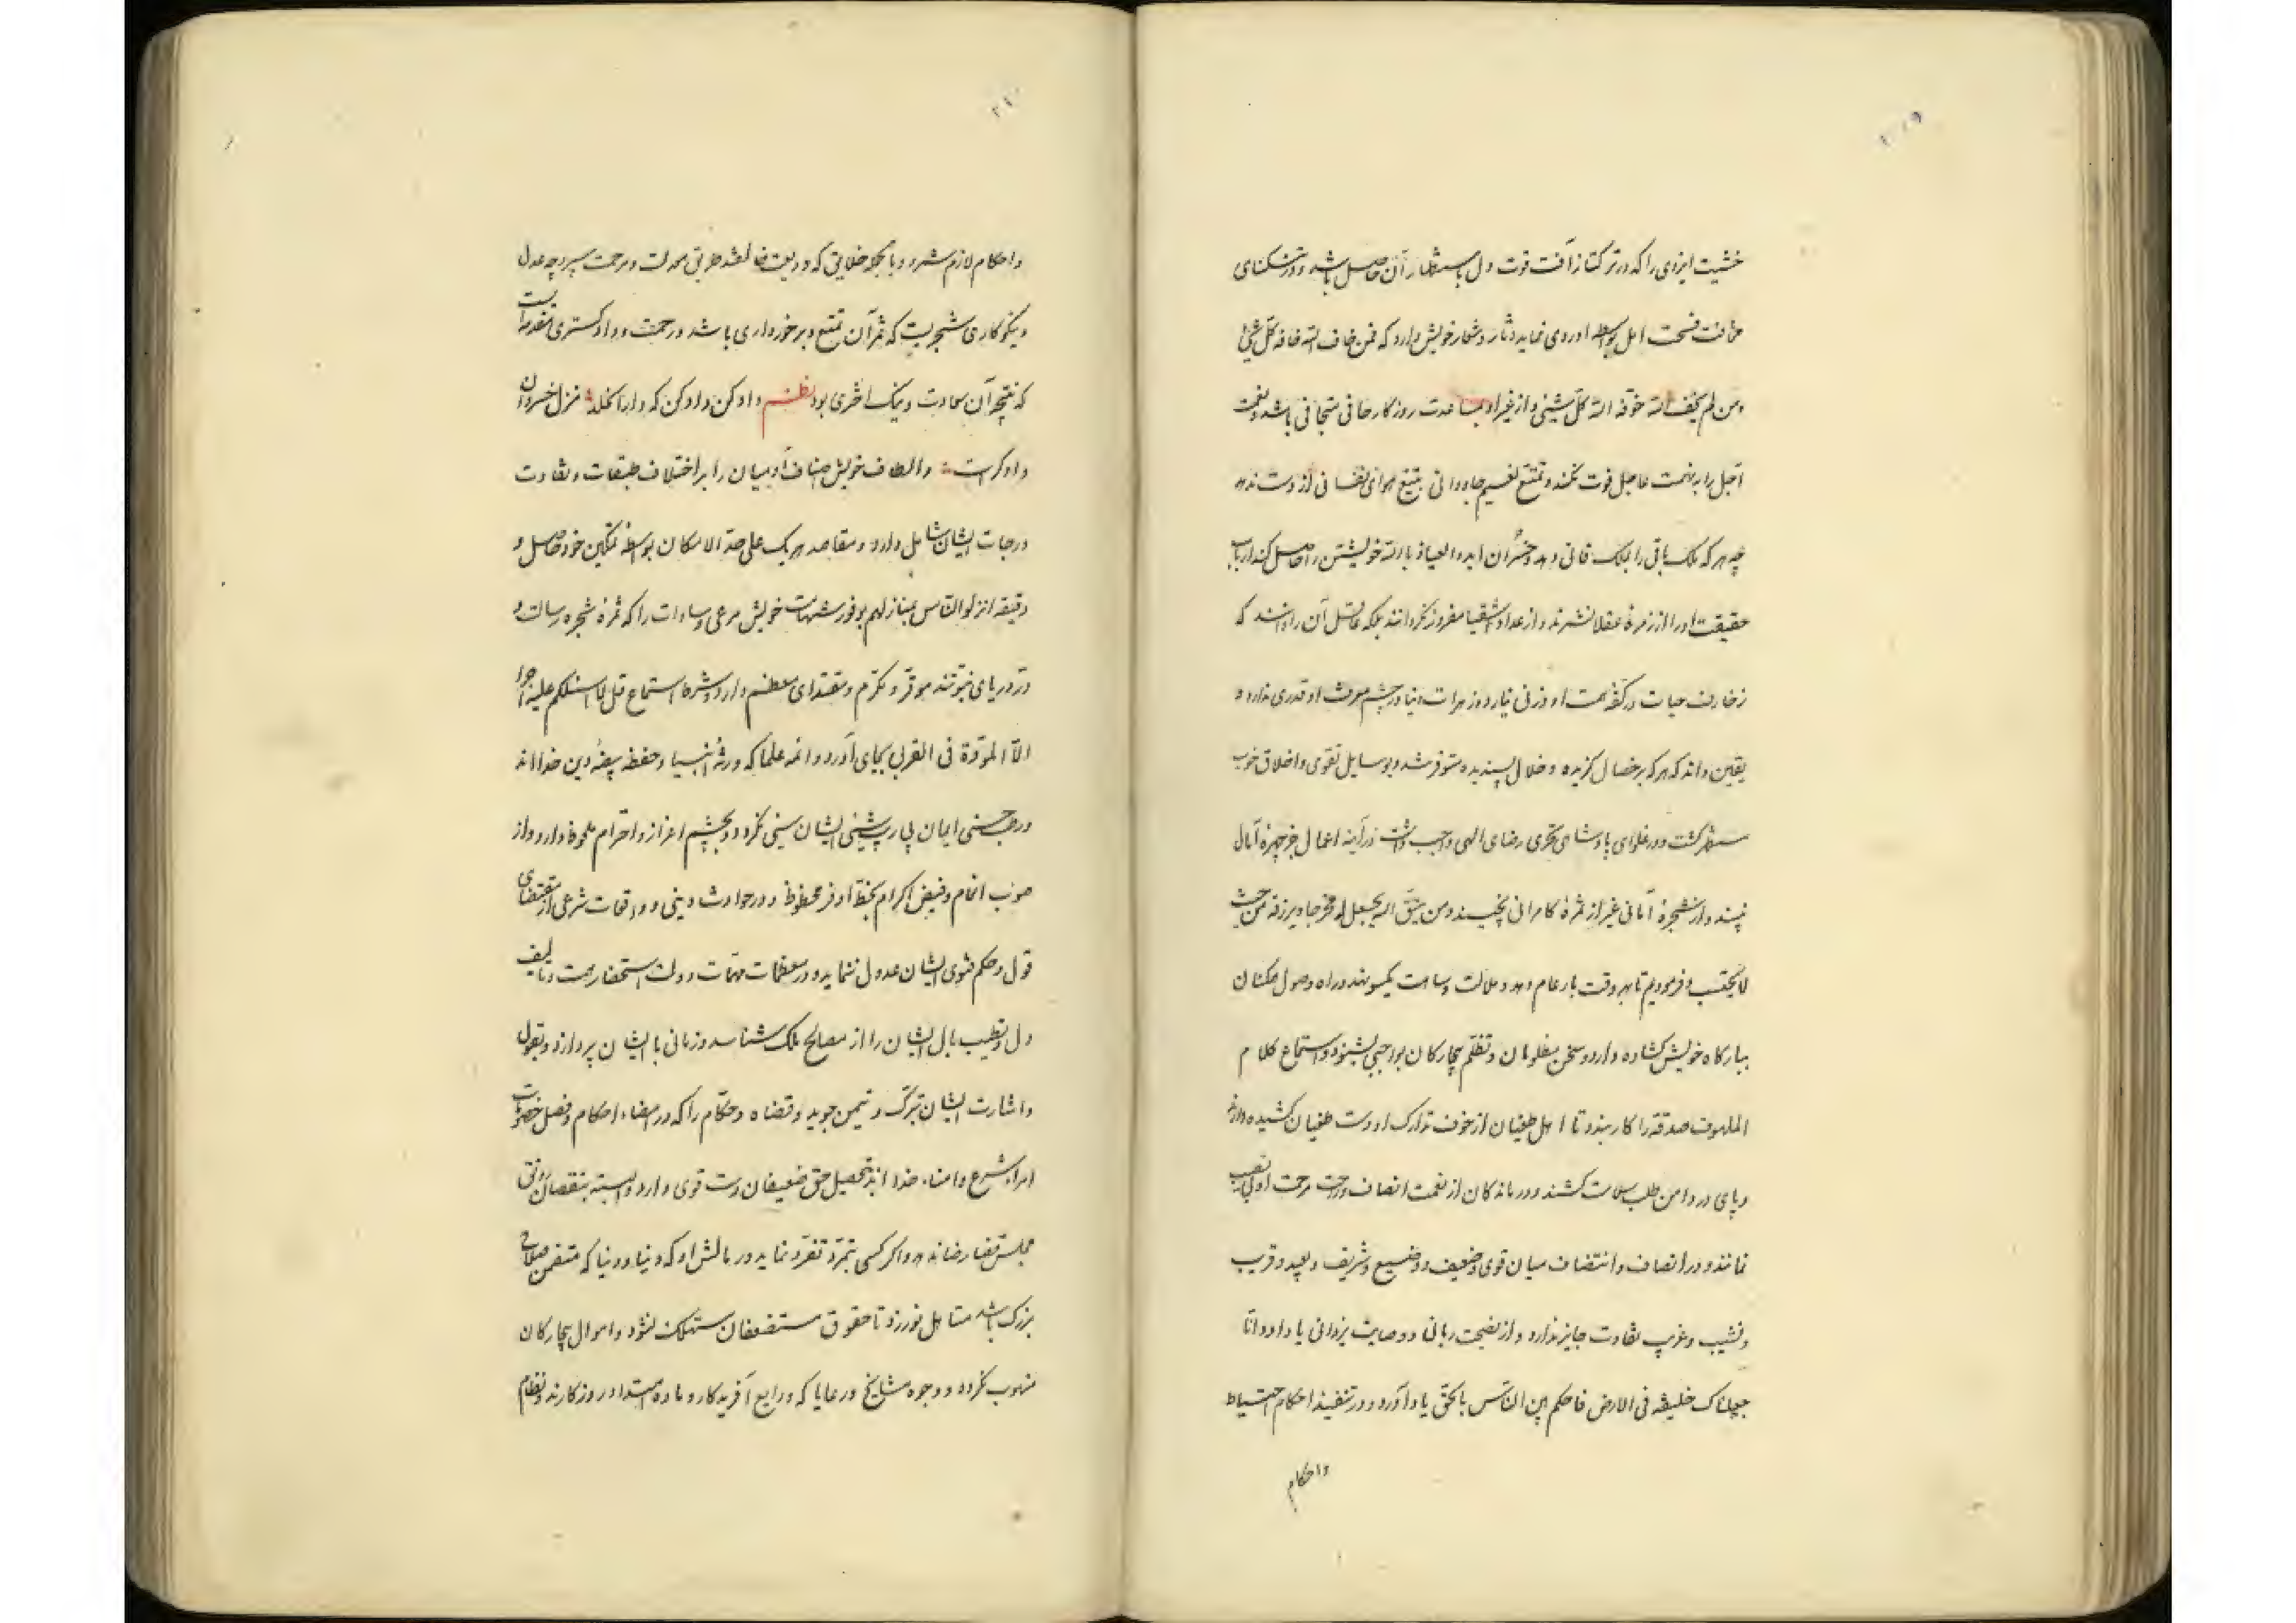 خشیت ایزدی را که در ترکتاز آفت قوت دل باستظهار آن حاصل باشد و در تنکنای
مخافت فسحت امل بواسطه او روی نماید دثار و شعار خویش دارد که فمن خاف الله خافه کل شیئ
ومن لم یخف الله خوفه الله کل شیئی و از غیر او بمساعدت روزکار جافی متجافی باشد و نعمت
آجل را به نهمت عاجل فوت نکند و تمتع نعیم جاودانی بتتبع هوای نفسانی از دست ندهد
چه هر که ملک باقی را بملک فانی دهد و خسران ابد والعیاذ بالله خویشتن را حاصل کند ارباب
حقیقت او را از زمره عقلا نشمرند و از عداد اشقیا مفروز نکردانند بلکه عاقل آن را دانند که
زخارف حیات در کفه همت او وزنی نیارد و زهرات دنیا در چشم معرفت او قدری ندارد و
یقین داند که هر که بر خصال کزیده و خلال پسندیده متوفر شد و بوسایل تقوی و اخلاق خوب
مستظهر کشت و در غلوای پادشاهی تحری رضای الهی واجب داشت در آینه اعمال جز چهره آمال
نبیند و از شجره امانی غیر از ثمره کامرانی نچیند ومن یتق الله یجعل له مخرجا ویرزقه من حیث
لا یحتسب و فرمودیم تا بهر وقت بار عام دهد و ملالت و سامت یکسو نهد و راه وصول ممکنان
ببارکاه خویش کشاده دارد و سخن مظلومان و تظلم بیچارکان بواجبی بشنود و استماع کلام
الملهوف صدقة را کار بندد تا اهل طغیان از خوف تدارک او دست طغیان کشیده دارند
و پای در دامن طلب سلامت کشند و درماندکان از نعمت انصاف و راحت مرحمت او بی نصیب
نمانند و در انصاف و انتصاف میان قوی و ضعیف و وضیع و شریف و بعید و قریب
و نسیب و غریب تفاوت جایز ندارد و از نصیحت ربانی و وصایت یزدانی یا داود انا
جعلناک خلیفة فی الارض فاحکم بین الناس بالحق یاد آورد و در تنفیذ احکام احتیاط
واحکام
۲۱۰
واحکام لازم شمرد و با جمله خلایق که ودیعت خالقند طریق معدلت و مرحمت سپرد چه عدل
و نیکوکاری شجریست که ثمر آن تمتع و برخورداری باشد و رحمت و دادکستری مقدمه‌ایست
که نتیجه آن سعادت و نیک اختری بود نظم داد کن داد کن که دار الخلد منزل خسروان
دادکرست و الطاف خویش اصناف آدمیان را بر اختلاف طبقات و تفاوت
درجات ایشان شامل دارد و مقاصد هر یک علی حدة الامکان بواسطه تمکین خود حاصل و
دقیقه انزلوا الناس منازلهم بوفور شهامت خویش مرعی و سادات را که ثمره شجره رسالت و
در دریای نبوتند موقر و مکرم و مقتدای معظم دارد و شرط استماع قل لا اسئلکم علیه اجرا
الا المودة فی القربی بجای آورد و ائمه علما که ورثه انبیا و حفظه بیضه دین خدااند
و رجحستی ایمان بی پارسشینی ایشان سنی نکردد بچشم اعزاز و احترام ملحوظ دارد و از
صوب انعام و فیض اکرام بحظ اوفر محظوظ و در حوادث دینی و واقعات شرعی از مقتضای
قول و حکم فتوی ایشان عدول ننماید و در معظمات مهمات دولت استحضار همت و تالیف
دل و تطییب بال ایشان را از مصالح ملک شناسد و زمانی با ایشان پردازد و بقول
و اشارت ایشان تبرک و تیمن جوید و قضاه و حکام را که در امضاء احکام و فصل خصومات
امراء شرع و امناء خدا اند بتحصیل حق ضعیفان دست قوی دارد و البته بنقصان رونق
مجلس قضا رضا ندهد و اکر کسی بتمرد تفرد نماید در مالش او که دنیا و دنیا که متضمن صلاح
بزرک باشد متاهل نورزد تا حقوق مستضعفان مستهلک نشود و اموال بیچارکان
منهوب نکردد و وجوه مشایخ و رعایا که ودایع آفریدکار و ماده استداد روزکارند و نظام